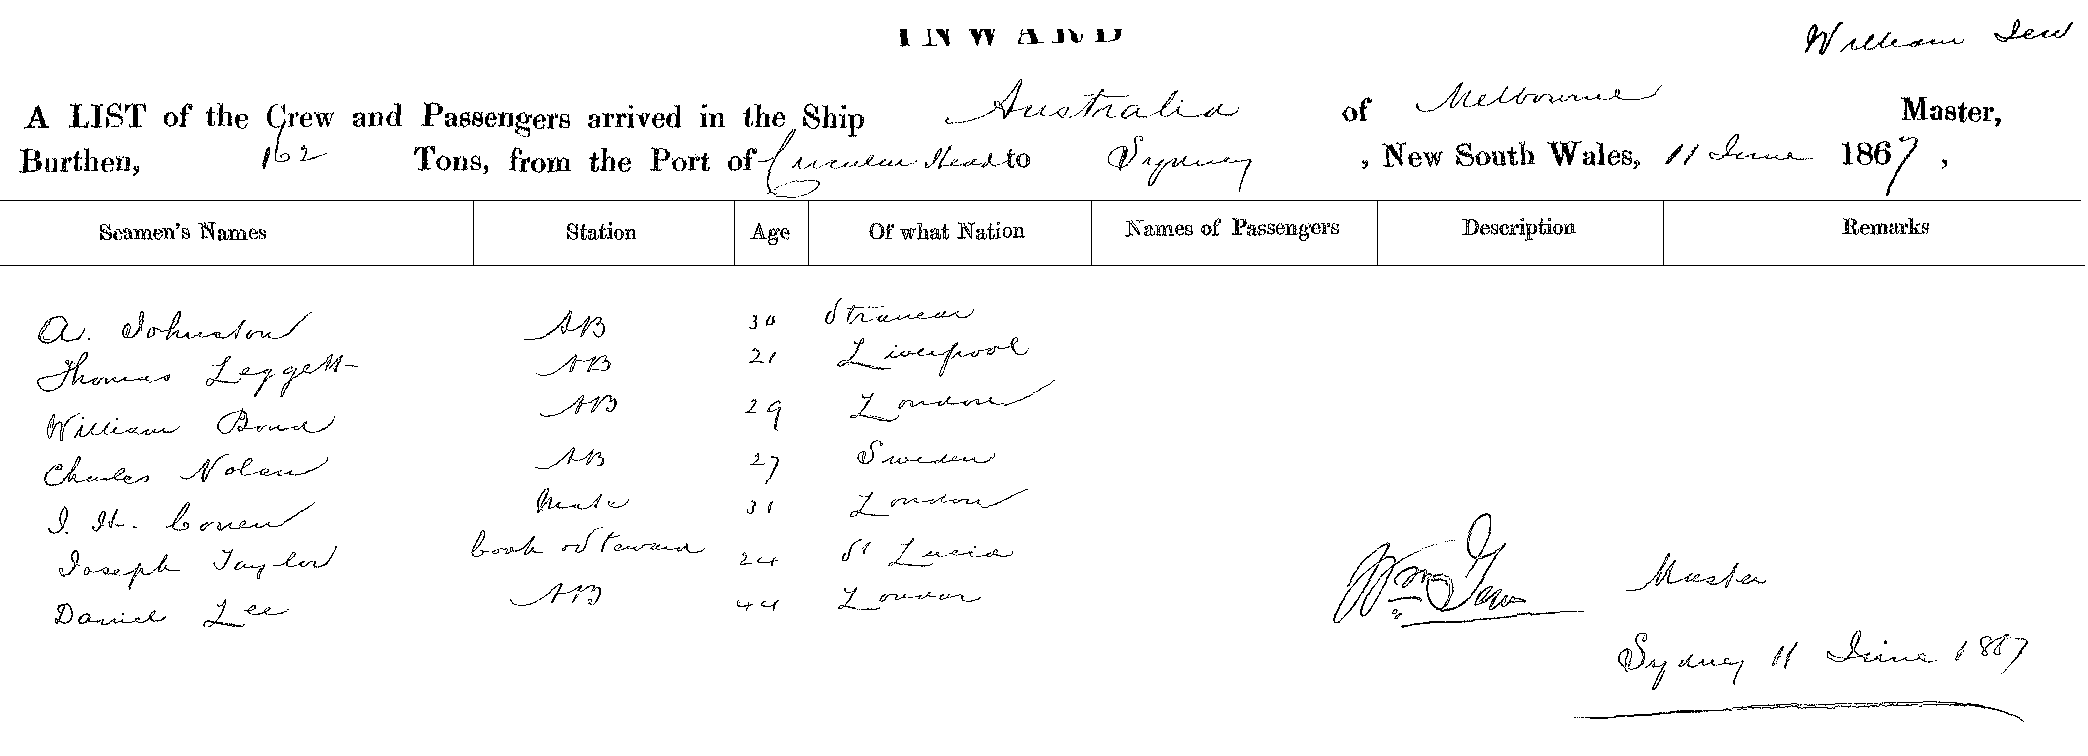 INWARD
William Jew
A LIST of the Crew and Passengers arrived in the Ship Australia of Melbourne Master,
Burthen, 162 Tons, from the Port of Circular Head to Sydney, New South Wales, 11 June 1867,
Seamen's Names Station Age Of what Nation Names of Passengers Description Remarks
A. Johnston AB 30 Stranear
Thomas Leggett AB 21 Liverpool
William Bond AB 29 London
Charles Nolan AB 27 Sweden
J. H. Conen Mate 31 London
Joseph Taylor Cook & Steward 24 St Lucia
Daniel Lee AB 44 London
Wm Jew Master
Sydney 11 June 1867